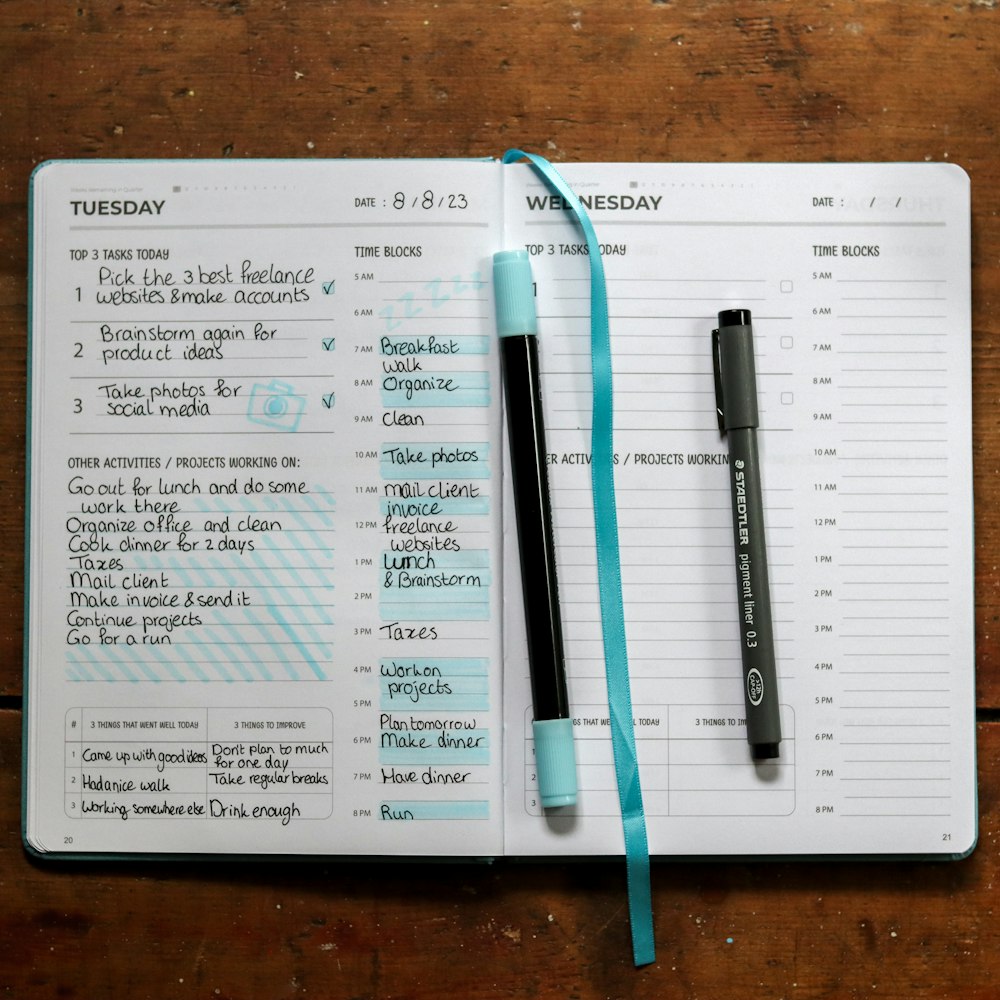 TUESDAY
DATE : 8/8/23
TOP 3 TASKS TODAY
1 Pick the 3 best freelance
websites & make accounts
2 Brainstorm again for
product ideas
3 Take photos for
social media
OTHER ACTIVITIES / PROJECTS WORKING ON:
Go out for lunch and do some
work there
Organize office and clean
Cook dinner for 2 days
Taxes
Mail client
Make invoice & send it
Continue projects
Go for a run
# 3 THINGS THAT WENT WELL TODAY 3 THINGS TO IMPROVE
1 Came up with good ideas Don't plan to much
for one day
2 Had a nice walk Take regular breaks
3 Working somewhere else Drink enough
20
TIME BLOCKS
5 AM ZZZZZ
6 AM
7 AM Breakfast
walk
8 AM Organize
9 AM Clean
10 AM Take photos
11 AM Mail client
invoice
12 PM freelance
websites
1 PM Lunch
& Brainstorm
2 PM
3 PM Taxes
4 PM Work on
projects
5 PM
Plan tomorrow
6 PM Make dinner
7 PM Have dinner
8 PM Run
WEDNESDAY
DATE : / /
TOP 3 TASKS TODAY
1
ER ACTIVITIES / PROJECTS WORKIN
GS THAT WENT WELL TODAY 3 THINGS TO IM
TIME BLOCKS
5 AM
6 AM
7 AM
8 AM
9 AM
10 AM
11 AM
12 PM
1 PM
2 PM
3 PM
4 PM
5 PM
6 PM
7 PM
8 PM
21
STAEDTLER pigment liner 0.3